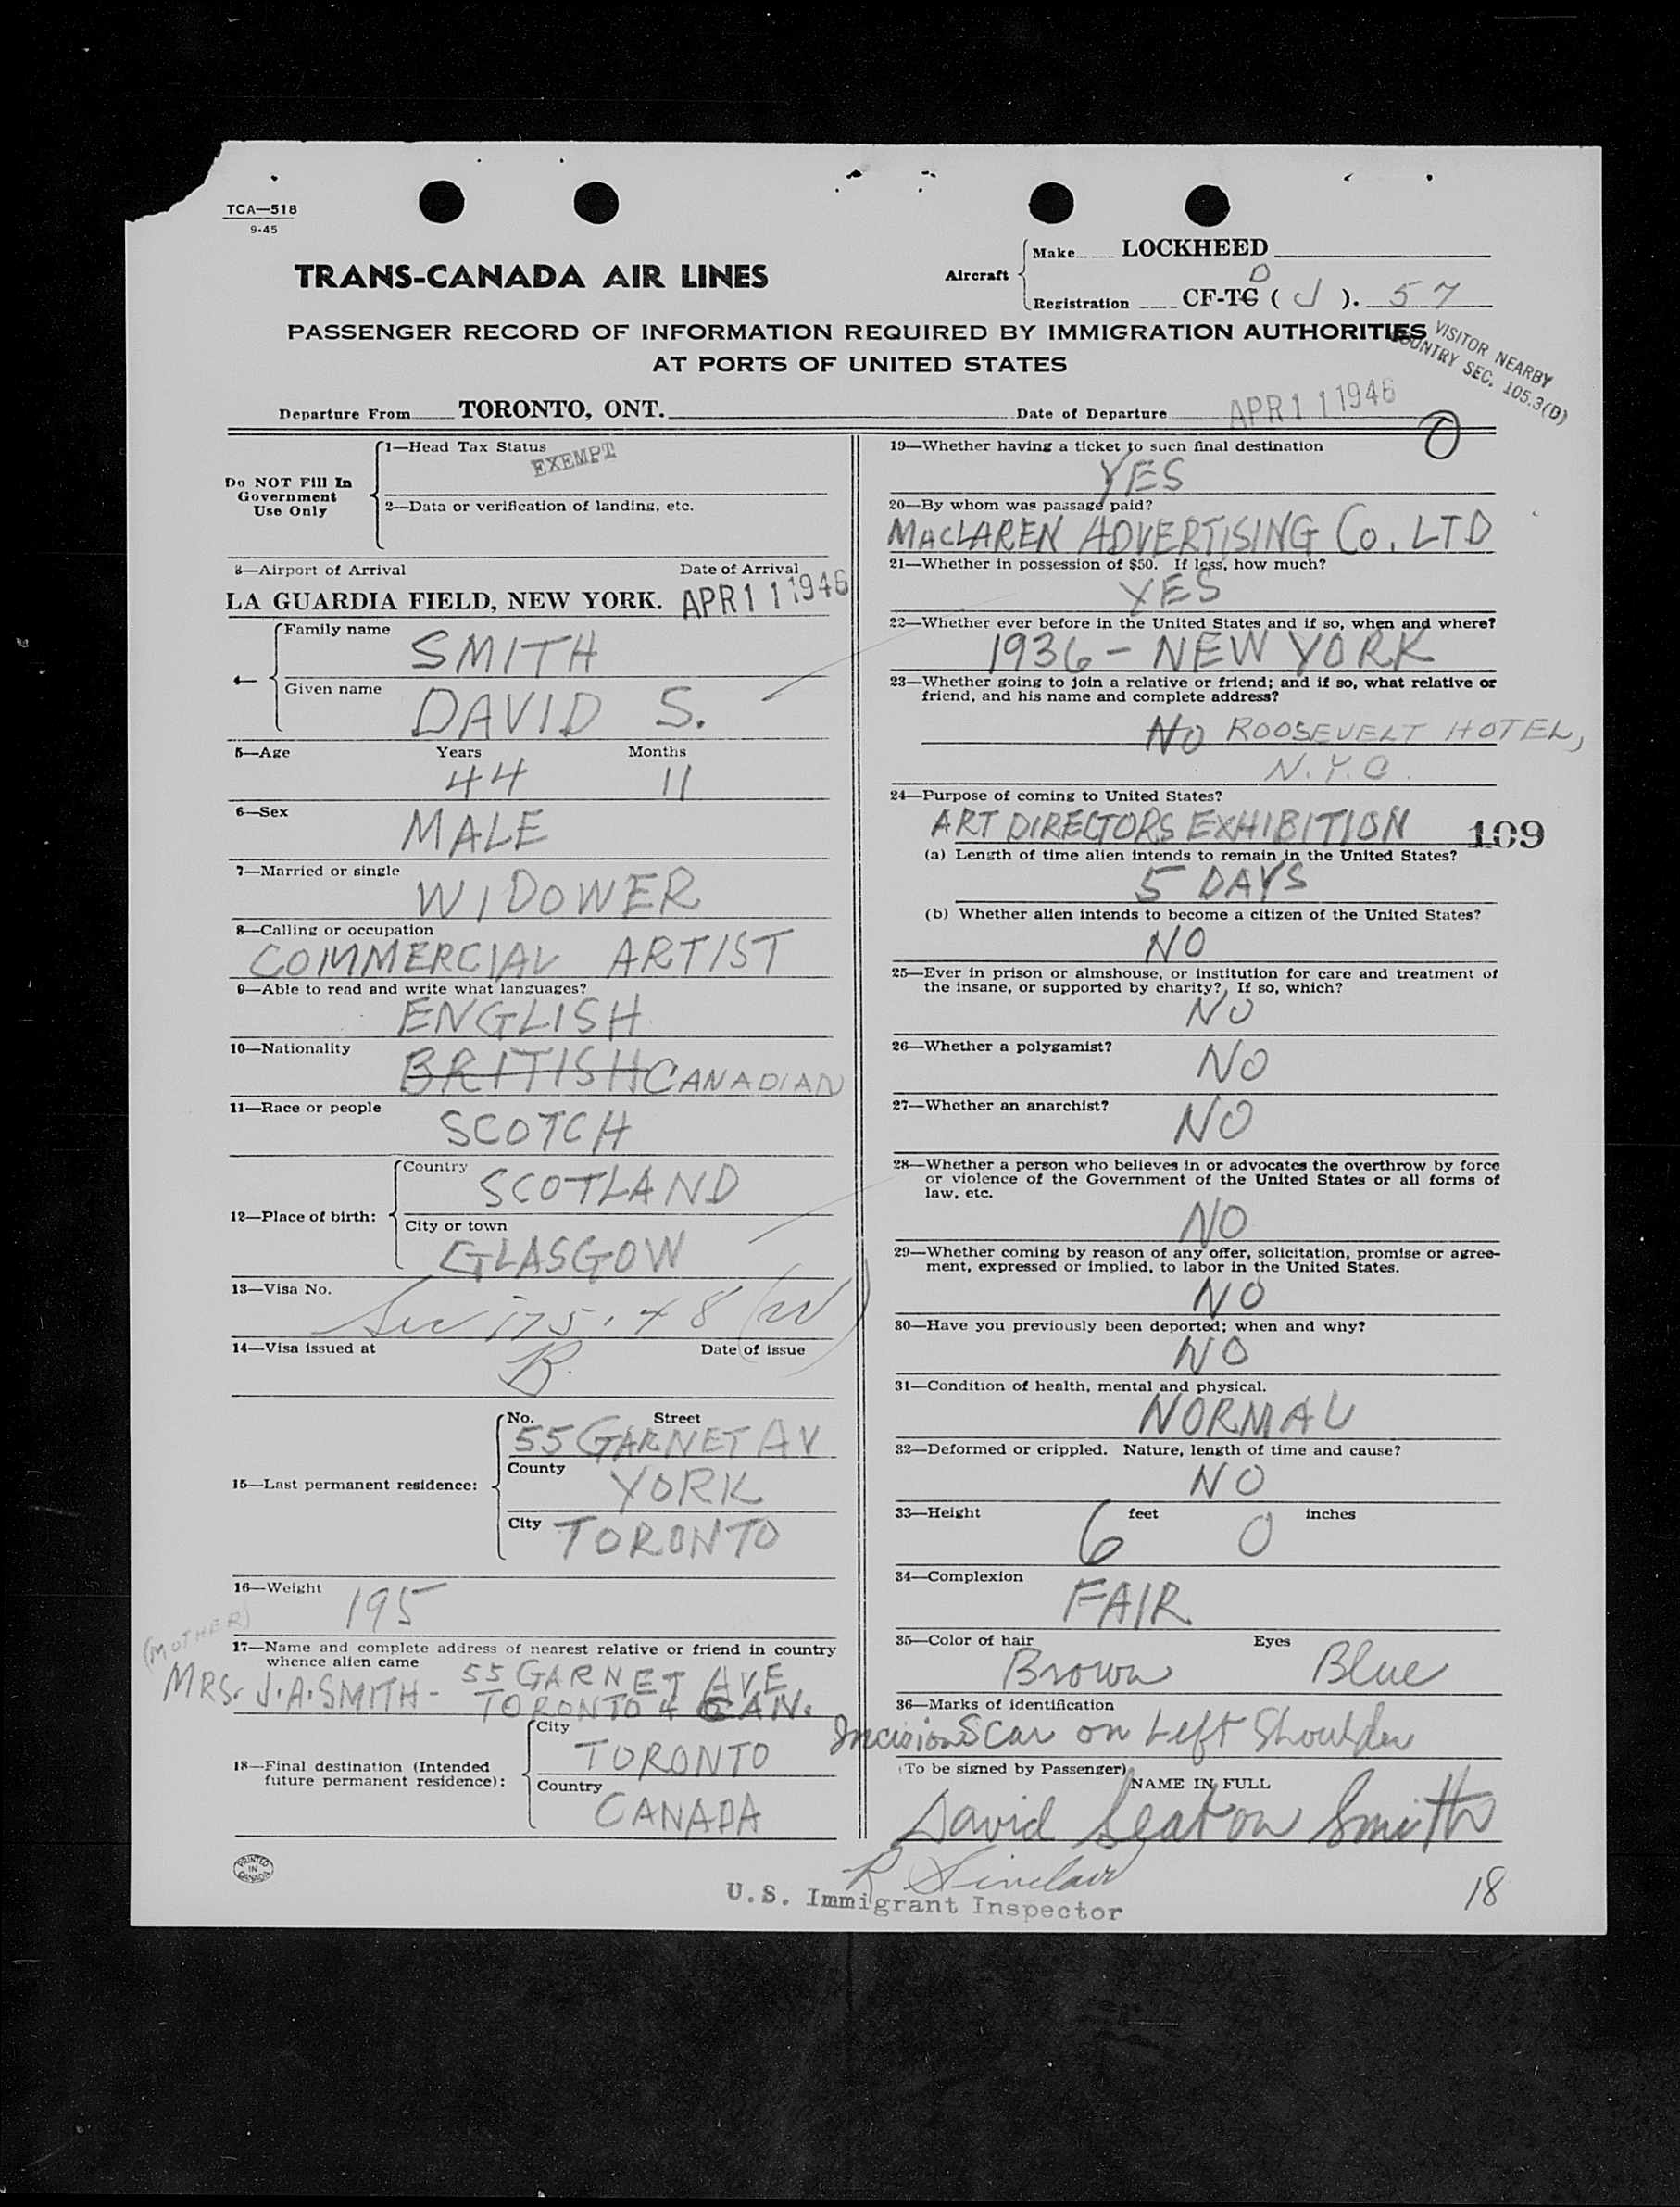 TCA—518
9-45
TRANS-CANADA AIR LINES
Aircraft
Make LOCKHEED
D
Registration CF-TG ( J ). 57
PASSENGER RECORD OF INFORMATION REQUIRED BY IMMIGRATION AUTHORITIES
AT PORTS OF UNITED STATES
VISITOR NEARBY
COUNTRY SEC. 105.3(D)
Departure From TORONTO, ONT.
Date of Departure APR 11 1946
O
Do NOT Fill In
Government
Use Only
1—Head Tax Status
EXEMPT
2—Data or verification of landing, etc.
3—Airport of Arrival Date of Arrival
LA GUARDIA FIELD, NEW YORK. APR 11 1946
Family name
SMITH
Given name
DAVID S.
5—Age Years Months
44 11
6—Sex
MALE
7—Married or single
WIDOWER
8—Calling or occupation
COMMERCIAL ARTIST
9—Able to read and write what languages?
ENGLISH
10—Nationality
BRITISH CANADIAN
11—Race or people
SCOTCH
12—Place of birth:
Country
SCOTLAND
City or town
GLASGOW
13—Visa No.
Sec 175.48 (W)
14—Visa issued at Date of issue
15—Last permanent residence:
No. Street
55 GARNET AV
County
YORK
City
TORONTO
16—Weight
195
(MOTHER)
17—Name and complete address of nearest relative or friend in country
whence alien came
MRS. J.A. SMITH - 55 GARNET AVE
TORONTO 4 CAN.
18—Final destination (Intended
future permanent residence):
City
TORONTO
Country
CANADA
PRINTED
IN
CANADA
19—Whether having a ticket to such final destination
YES
20—By whom was passage paid?
MACLAREN ADVERTISING CO. LTD
21—Whether in possession of $50. If less, how much?
YES
22—Whether ever before in the United States and if so, when and where?
1936 - NEW YORK
23—Whether going to join a relative or friend; and if so, what relative or
friend, and his name and complete address?
NO ROOSEVELT HOTEL,
N.Y.C.
24—Purpose of coming to United States?
ART DIRECTORS EXHIBITION 109
(a) Length of time alien intends to remain in the United States?
5 DAYS
(b) Whether alien intends to become a citizen of the United States?
NO
25—Ever in prison or almshouse, or institution for care and treatment of
the insane, or supported by charity? If so, which?
NO
26—Whether a polygamist?
NO
27—Whether an anarchist?
NO
28—Whether a person who believes in or advocates the overthrow by force
or violence of the Government of the United States or all forms of
law, etc.
NO
29—Whether coming by reason of any offer, solicitation, promise or agree-
ment, expressed or implied, to labor in the United States.
NO
30—Have you previously been deported; when and why?
NO
31—Condition of health, mental and physical.
NORMAL
32—Deformed or crippled. Nature, length of time and cause?
NO
33—Height feet inches
6 0
34—Complexion
FAIR
35—Color of hair Eyes
Brown Blue
36—Marks of identification
Incision Scar on Left Shoulder
(To be signed by Passenger)
NAME IN FULL
David Seaton Smith
R Sinclair
U.S. Immigrant Inspector
18